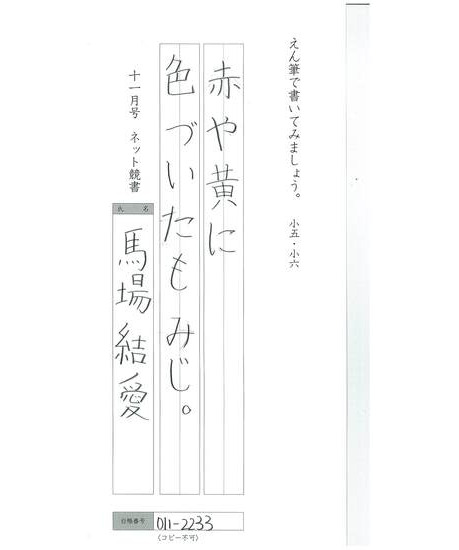 えん筆で書いてみましょう。 小五・小六
赤や黄に
色づいたもみじ。
十一月号 ネット競書
氏名
馬場結愛
台帳番号 011-2233
(コピー不可)